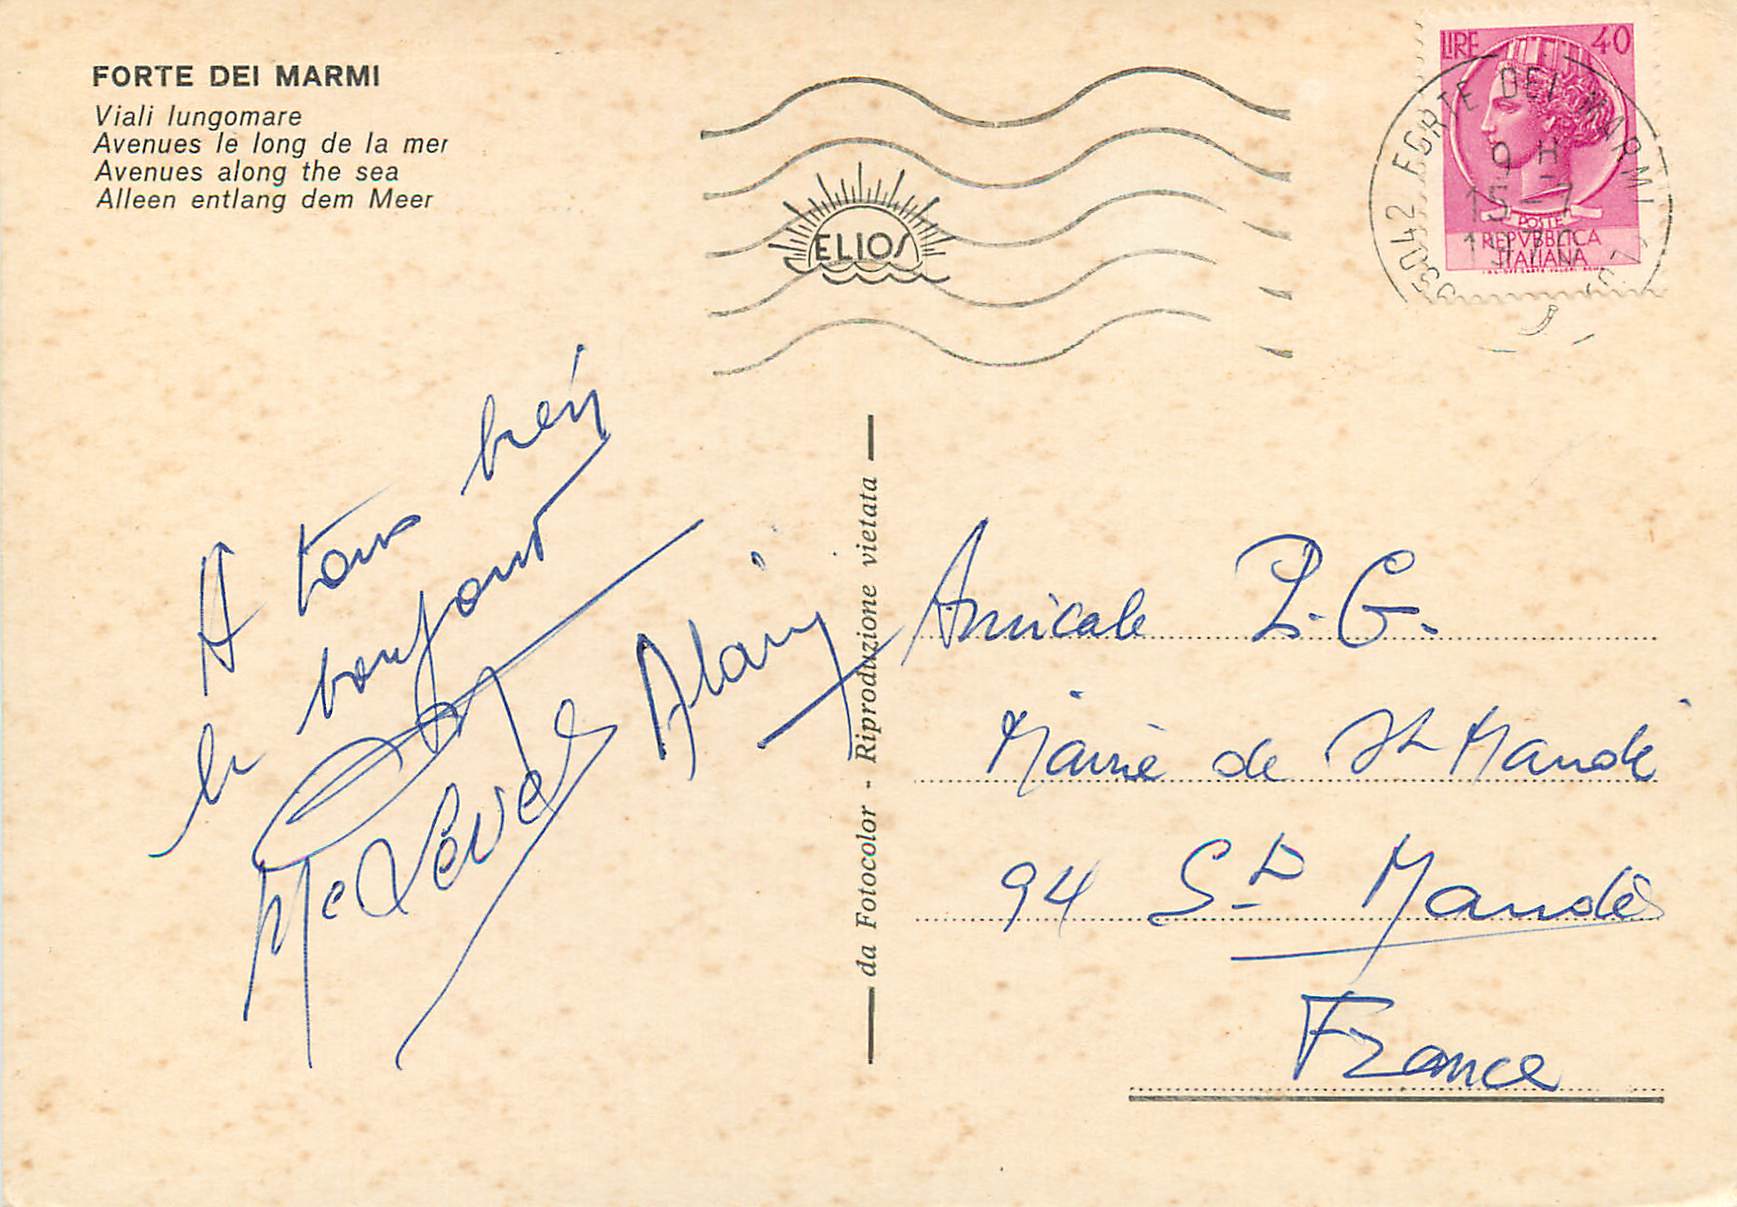 FORTE DEI MARMI
Viali lungomare
Avenues le long de la mer
Avenues along the sea
Alleen entlang dem Meer
ELIOS
LIRE 40
POSTE
REPVBBLICA
ITALIANA
FORTE DEI MARMI
9 H
15-7
A tous bien
le bonjour
Alain
da Fotocolor - Riproduzione vietata
Amicale P.G.
Mairie de St Mandé
94 St Mandé
France